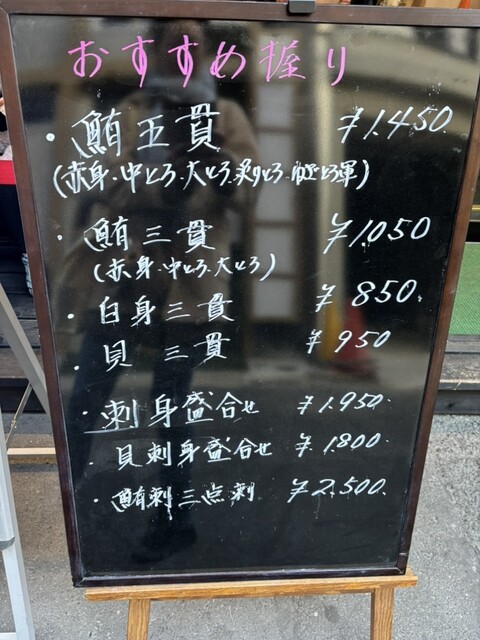 おすすめ握り
・鮪五貫 ¥1.450.
(赤身.中とろ.大とろ.炙りとろ.ねぎとろ軍)
・鮪三貫 ¥1.050
(赤身.中とろ.大とろ)
・白身三貫 ¥850.
・貝三貫 ¥950
・刺身盛合せ ¥1.950.
・貝刺身盛合せ ¥1.800.
・鮪刺三点刺 ¥2.500.